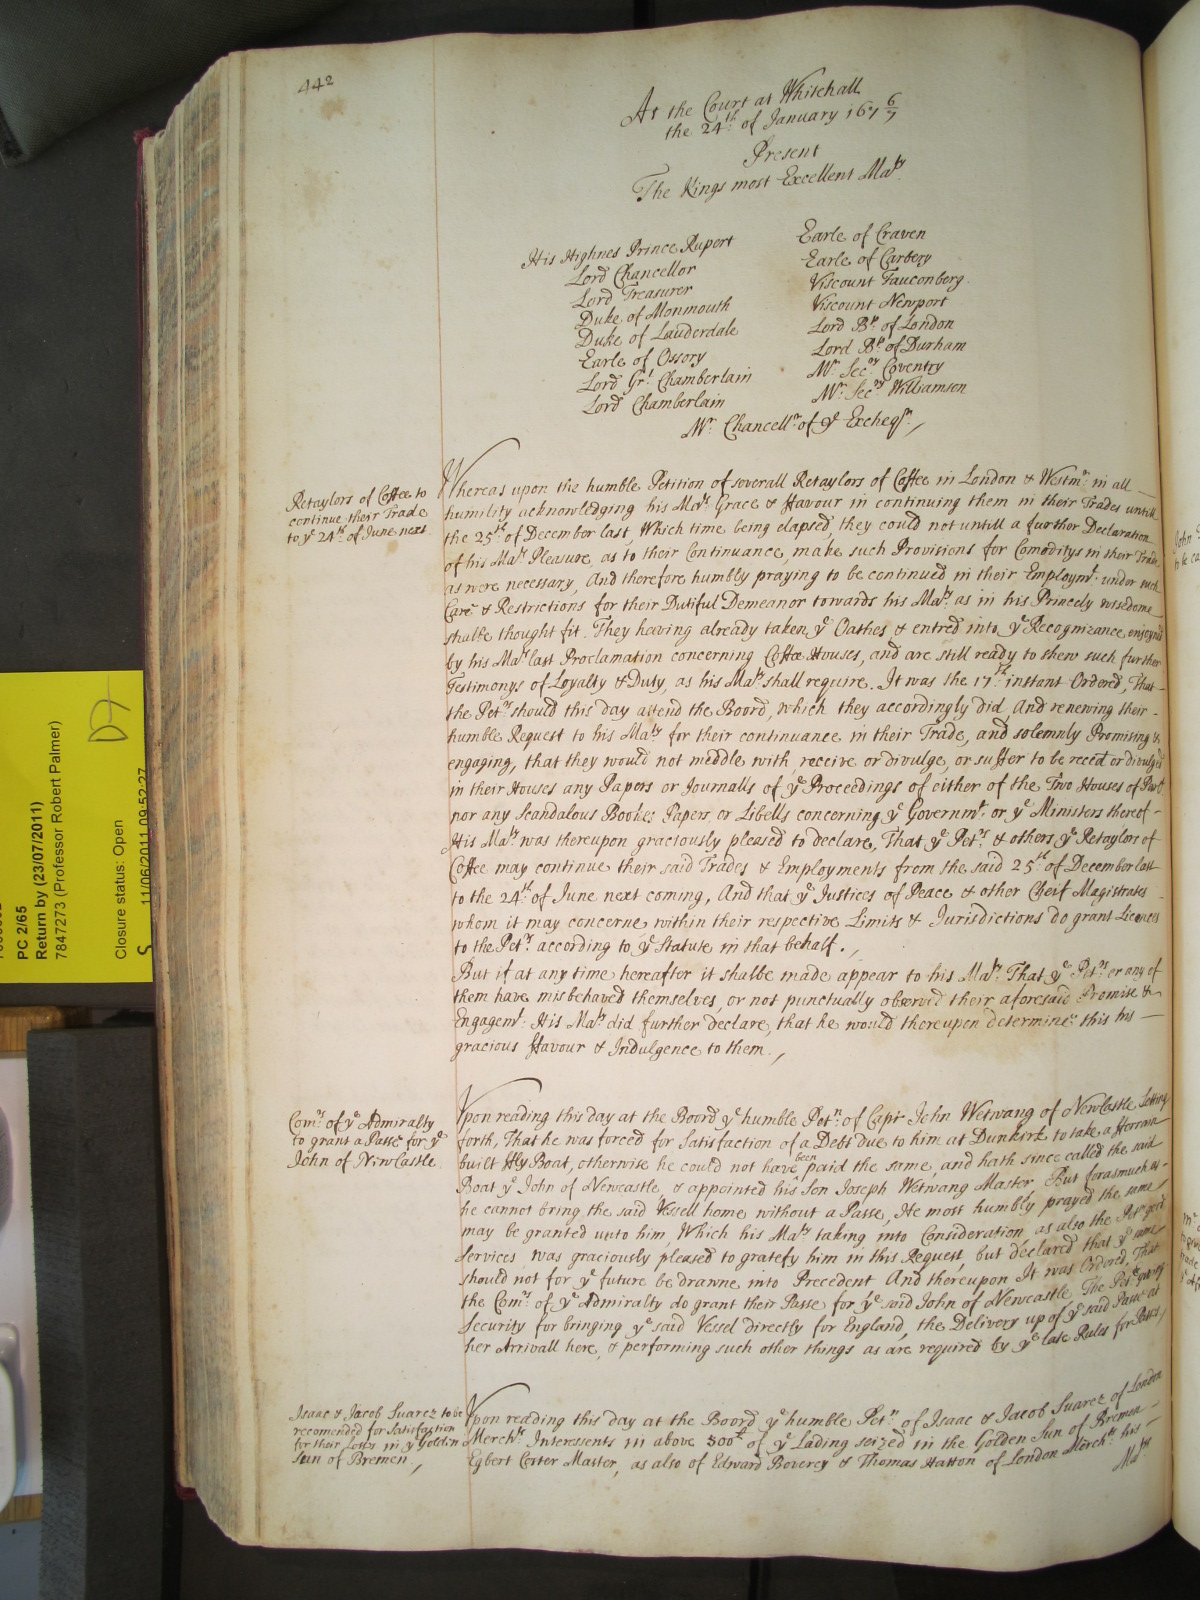 442
At the Court at Whitehall
the 24th of January 167 6/7
Present
The Kings most Excellent Maty
His Highnes Prince Rupert
Lord Chancellor
Lord Treasurer
Duke of Monmouth
Duke of Lauderdale
Earle of Ossory
Lord Grt Chamberlain
Lord Chamberlain
Earle of Craven
Earle of Carbery
Viscount Fauconberg.
Viscount Newport
Lord Bp. of London
Lord Bp. of Durham
Mr. Secry Coventry
Mr. Secry Williamson
Mr. Chancellr. of ye Excheqr.
Retaylors of Coffee to
continue their Trade
to ye 24th of June next
Whereas upon the humble Petition of severall Retaylors of Coffee in London & Westmr. in all
humility acknowledging his Mats Grace & ffavour in continuing them in their Trades untill
the 25th of December last, Which time being elapsed, they could not untill a further Declaration
of his Mats Pleasure, as to their Continuance, make such Provisions for Comoditys in their Trade
as were necessary, And therefore humbly praying to be continued in their Employmt. under such
Care & Restrictions for their Dutiful Demeanor towards his Maty. as in his Princely wisedome
shalbe thought fit. They having already taken ye Oathes & entred into ye Recognizance enjoynd
by his Mats last Proclamation concerning Coffee Houses, and are still ready to shew such further
Testimonys of Loyalty & Duty, as his Maty shall require. It was the 17th instant Ordered, That
the Petrs should this day attend the Boord, which they accordingly did, And renewing their
humble Request to his Maty for their continuance in their Trade, and solemnly Promising &
engaging, that they would not meddle with, receive or divulge, or suffer to be recēd or divulged
in their Houses any Papers or Journalls of ye Proceedings of either of the Two Houses of Parlt
nor any Scandalous Bookes Papers, or Libells concerning ye Governmt. or ye Ministers thereof
His Maty was thereupon graciously pleased to declare, That ye Petrs. & others ye Retaylors of
Coffee may continue their said Trades & Employments from the said 25th of December last
to the 24th of June next coming, And that ye Justices of Peace & other Cheif Magistrates
whom it may concerne within their respective Limits & Jurisdictions do grant Licences
to the Petrs. according to ye Statute in that behalf.
But if at any time hereafter it shalbe made appear to his Maty. That ye Petrs. or any of
them have misbehaved themselves, or not punctually observed their aforesaid Promise &
Engagemt. His Maty did further declare, that he would thereupon determine this his
gracious ffavour & Indulgence to them.
Comrs of ye Admiralty
to grant a Passe for ye
John of NewCastle
Upon reading this day at the Boord ye humble Petn. of Capt John Wetwang of NewCastle Setting
forth, That he was forced for Satisfaction of a Debt due to him at Dunkirk to take a fforrain
built ffly Boat, otherwise he could not have been paid the same, and hath since called the said
Boat ye John of Newcastle, & appointed his Son Joseph Wetwang Master But forasmuch as
he cannot bring the said Vessell home without a Passe, He most humbly prayed the same
may be granted unto him, Which his Maty taking into Consideration, as also the Petrs good
Services was graciously pleased to gratefy him in this Request, but declared that ye same
should not for ye future be drawne into Precedent And thereupon It was Ordered, That
the Comrs of ye Admiralty do grant their Passe for ye said John of Newcastle The Petr giving
Security for bringing ye said Vessel directly for England, the Delivery up of ye said Passe at
her Arrivall here, & performing such other things as are required by ye late Rules for Passes
Isaac & Jacob Suarez to be
recomended for Satisfaction
for their Losses in ye Golden
Sun of Bremen
Upon reading this day at the Boord ye humble Petn. of Isaac & Jacob Suarez of London
Merchts. Interessents in above 500£ of ye Lading seized in the Golden Sun of Bremen
Egbert Coster Master, as also of Edward Boverey & Thomas Hatton of London Merchts his
Mats
PC 2/65
Return by (23/07/2011)
7847273 (Professor Robert Palmer)
Closure status: Open
11/06/2011 09:52:27
S
D7